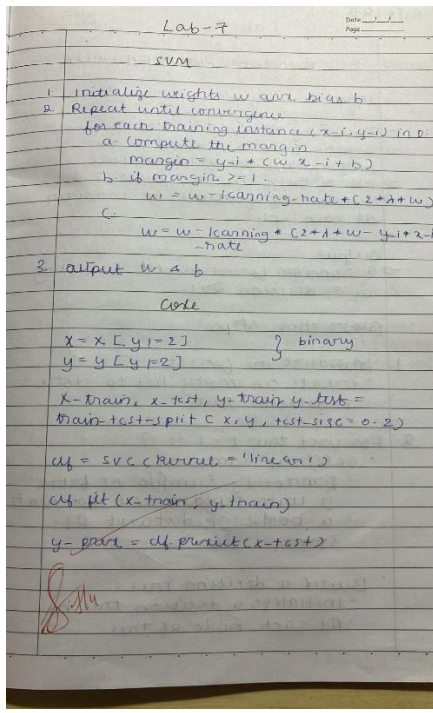 Lab-7
Date __/__/__
Page
SVM
1. Initialize weights w and bias b
2. Repeat until convergence
for each training instance (x-i, y-i) in D:
a. compute the margin
margin = y-i * (w. x-i + b)
b. if margin >= 1:
w = w - learning-rate * (2 * λ * w)
c.
w = w - learning * (2 * λ * w - y-i * x-i
-rate
3. output w & b
Code
x = x [y != 2] } binary
y = y [y != 2]
x-train, x-test, y-train y-test =
train-test-split (x, y, test-size = 0.2)
clf = SVC (kernel = 'linear')
clf fit (x-train, y-train)
y-pred = clf. predict (x-test)